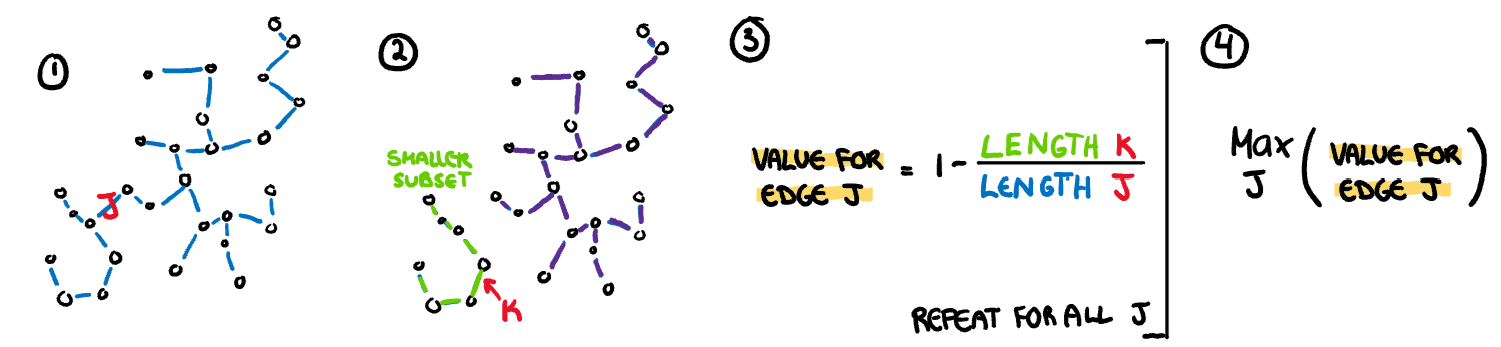 1
J
2
SMALLER
SUBSET
K
3
VALUE FOR
EDGE J
= 1 - LENGTH K
LENGTH J
REPEAT FOR ALL J
4
Max
J
(VALUE FOR
EDGE J)